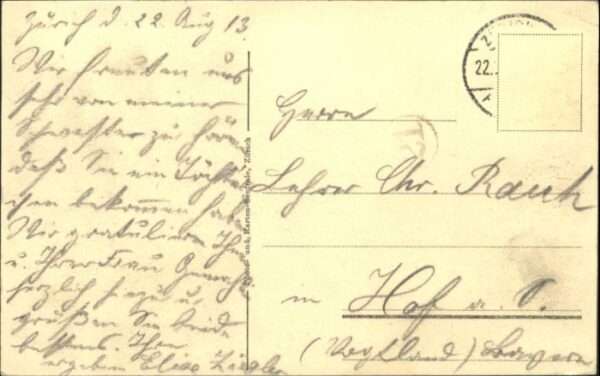 Zürich d. 22. Aug 13.
Wir freuten uns
sehr von meiner
Schwester zu hören
daß Sie ein Töchter-
chen bekommen hab.
Wir gratulieren Ihn
u. Ihrer Frau Gemahl
herzlich hiezu u.
grüßen Sie beide
bestens. Ihre
ergeben Elise Ziegler
Herrn
Lehrer Chr. Rauh
in Hof a. S.
(Vogtland) Bayern
22.
Zürich